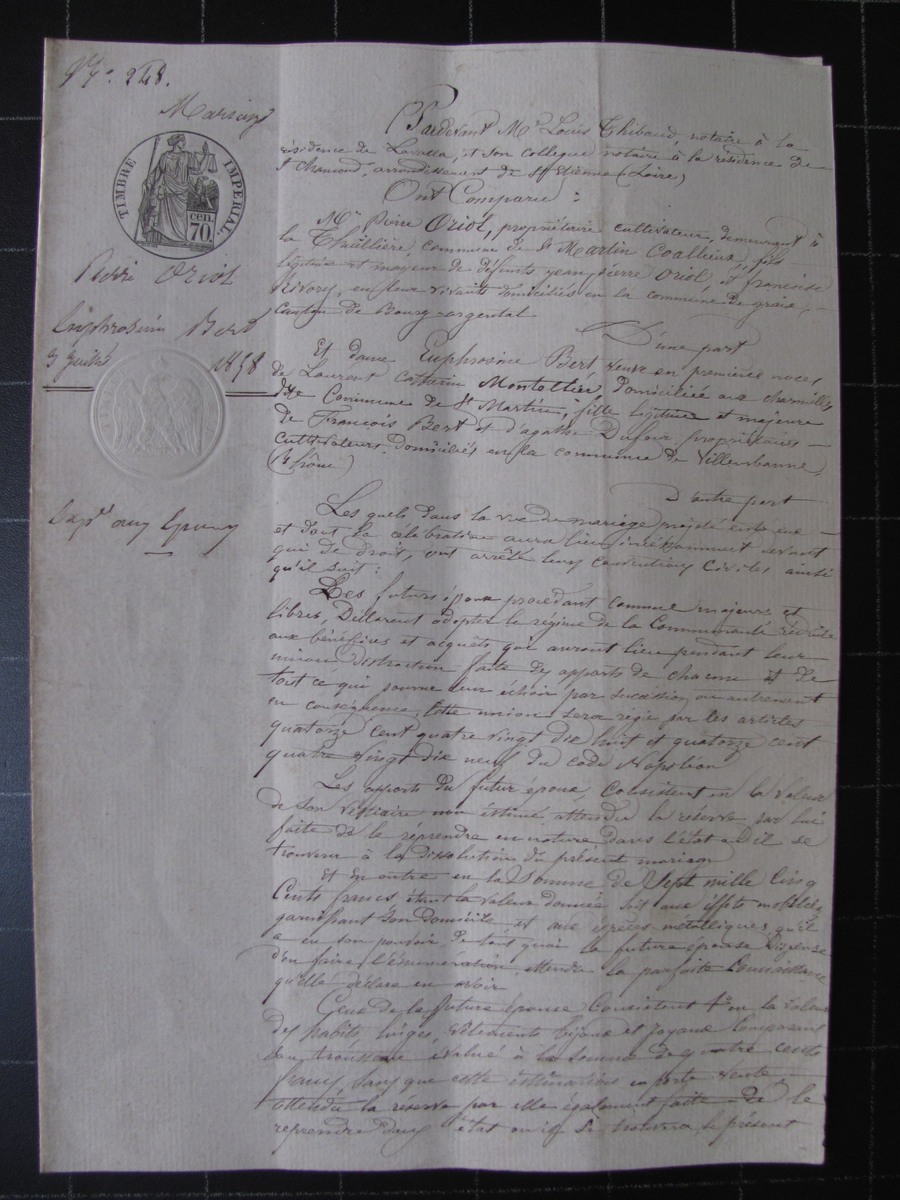 N° 248.
Mariage
TIMBRE IMPERIAL
cen.
70.
Pierre Oriol
Euphrosine Bert
3 Juillet 1858
Exp.é aux Epoux
Pardevant Me Louis Thibaud, notaire à la
résidence de Lavalla, et son collègue notaire à la résidence de
St Chamond, arrondissement de St Etienne (Loire)
Ont Comparu :
Mr Pierre Oriol, propriétaire cultivateur, demeurant à
la Thuillière, commune de St Martin Coallieux, fils
légitime et majeur de défunts jean pierre Oriol, et françoise
Rivory, en leur vivants domiciliés en la commune de graix,
Canton de Bourg-argental
D'une part
Et dame Euphrosine Bert, veuve en premières noces,
de Laurent Montollier, Domiciliée aux charmilles
dite Commune de St Martin, fille légitime et majeure
de François Bert et d'agathe Dufour, propriétaires
cultivateurs, domiciliés en la commune de Villeurbanne,
(Rhône)
D'autre part
Les quels dans la vue du mariage projeté entre eux
et dont la célébration aura lieu incessamment devant
qui de droit, ont arrêté leurs conventions civiles ainsi
qu'il suit :
Les futurs époux procédant comme majeurs et
libres, Déclarent adopter le régime de la Communauté réduite
aux bénéfices et acquêts qui auront lieu pendant leur
union, distraction faite des apports de chacun et de
tout ce qui pourra leur échoir par succession ou autrement
en conséquence, cette union sera régie par les articles
quatorze cent quatre vingt dix huit et quatorze cent
quatre vingt dix neuf du code Napoléon
Les apports du futur époux Consistent en la valeur
de son vestiaire non estimé, attendu la réserve par lui
faite de le réprendre en nature dans l'état où il se
trouvera à la dissolution du présent mariage
Et en outre en la Somme de Sept mille Cinq
Cents francs étant la valeur donnée soit aux effets mobiliers
garnissant son domicile, et aux espèces métalliques qu'il
a en son pouvoir de tout quoi la future épouse dispense
d'en faire l'énumération attendu la parfaite Connaissance
qu'elle déclare en avoir
Ceux de la future épouse Consistent 1° en la valeur
des habits, linges, vêtements bijoux et joyaux Composant
son trousseau évalué à la somme de quatre cents
francs, sans que cette estimation en porte vente
attendu la réserve par elle également faite de le
reprendre dans l'état où il se trouvera le présent